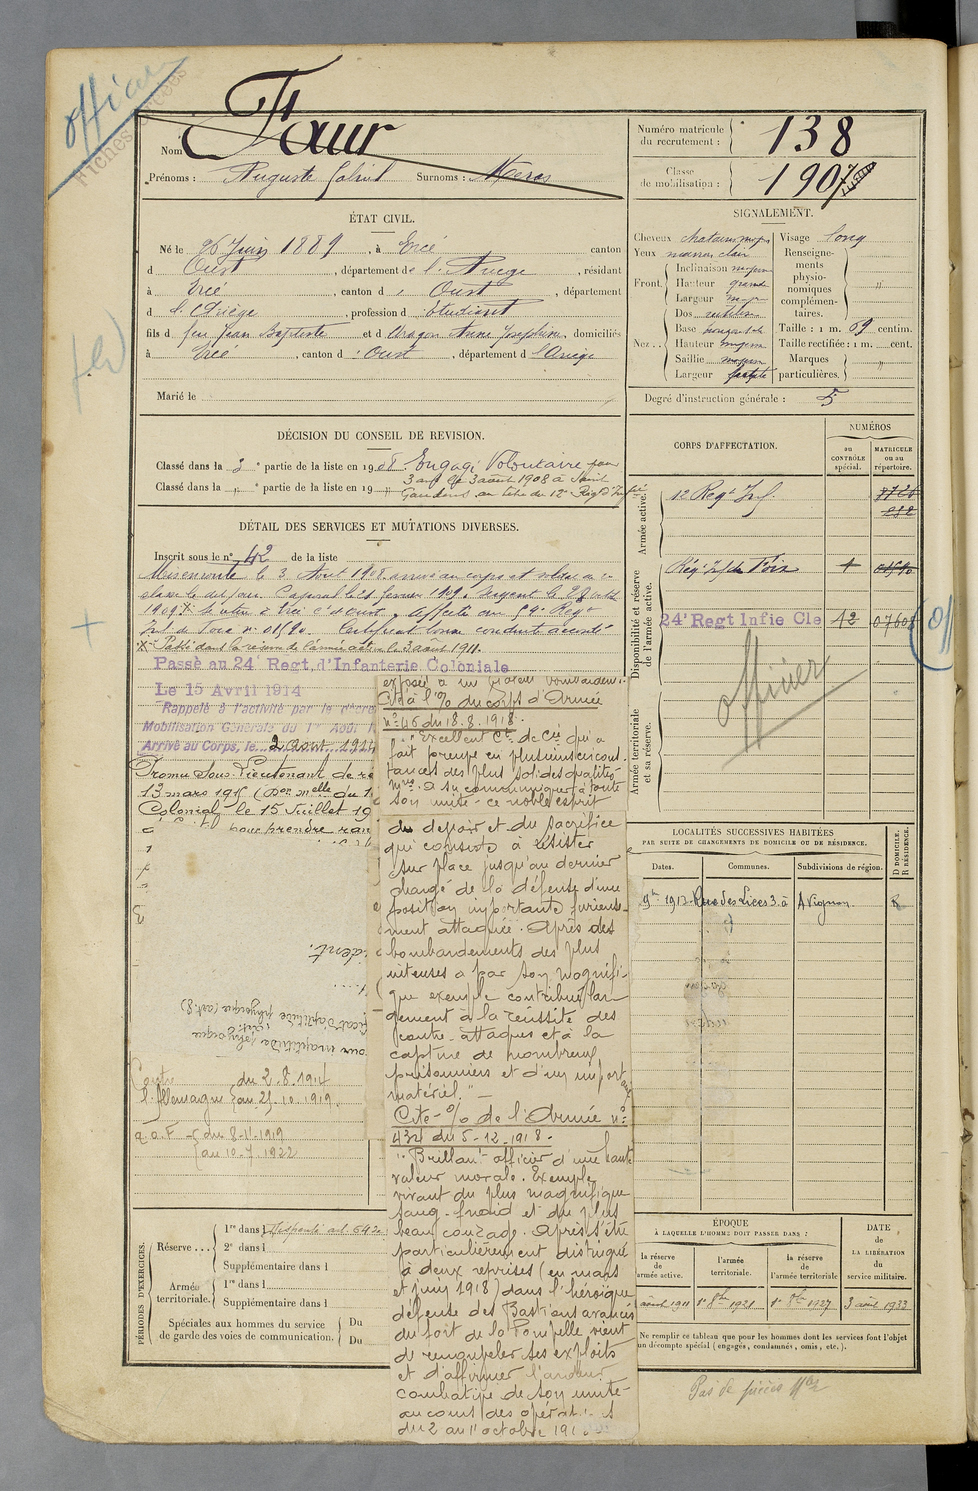 officier
Fiches
Nom Faur
Prénoms : Auguste Gabriel Surnoms : Meras
Numéro matricule du recrutement : 138
Classe de mobilisation : 1907
ÉTAT CIVIL.
Né le 26 Juin 1889, à Ercé canton
d Oust, département de l'Ariège, résidant
à Ercé, canton d Oust, département
d l'Ariège, profession d Etudiant
fils d feu Jean Baptiste et d Aragon Anne Josephine domiciliés
à Ercé, canton d Oust, département d l'Ariège
Marié le
SIGNALEMENT.
Cheveux chatains moyen
Yeux marron clair
Front. Inclinaison moyen
Hauteur grande
Largeur moy
Nez. Dos rectiligne
Base horizontale
Hauteur moyenne
Saillie moyen
Largeur
Visage long
Renseignements physionomiques complémentaires. "
Taille : 1 m. 69 centim.
Taille rectifiée : 1 m. cent.
Marques particulières. "
Degré d'instruction générale : 5
DÉCISION DU CONSEIL DE REVISION.
Classé dans la 3e partie de la liste en 1908. Engagé Volontaire pour
3 ans le 3 aout 1908 à Saint
Classé dans la " e partie de la liste en 19 "
Gaudens au titre du 12e Régt d'Infie
DÉTAIL DES SERVICES ET MUTATIONS DIVERSES.
Inscrit sous le n° 42 de la liste
Mis en route le 3 Aout 1908 arrivé au corps et soldat de 2e
classe le dit jour. Caporal le 21 février 1909. Sergent le 28
1909. Se retire à Ercé Cton d'Oust. Affecté au 59e Regt
Inf de Foix n° 01590. Certificat bonne conduite accordé
Passé dans la réserve de l'armée active le 3 aout 1911.
Passé au 24e Regt. d'Infanterie Coloniale
Le 15 Avril 1914
Rappelé à l'activité par le
Mobilisation Générale du 1er Août
Arrivé au Corps, le 2 Aout 1914
Promu Sous-Lieutenant de
13 mars 1915
Colonial le 15 Juillet 19
pour prendre rang
our inaptitude physique
ficat d'aptitude physique (art. 8)
Contre l'Allemagne du 2.8.1914
au 21.10.1919.
du 8-1-1919
au 10.7.1922
exposé à un
Cité à l'O/ du corps d'Armée
n° 46 du 18.8.1918.
"Excellent Ct de Cie qui a
fait preuve en plusieurs circons
tances des plus solides qualités
A su communiquer à toute
son unité ce noble esprit
du devoir et du sacrifice
qui consiste à résister
sur place jusqu'au dernier
chargé de la défense d'une
position importante furieuse-
ment attaquée. Après des
bombardements des plus
intenses a par son magnifi-
que exemple contribué lar-
gement à la réussite des
contre-attaques et à la
capture de nombreux
prisonniers et d'un important
matériel." -
Cité O/ de l'Armée n°
434 du 5-12-1918.
"Brillant officier d'une haute
valeur morale. Exemple
vivant du plus magnifique
sang-froid et du plus
beau courage. Après s'être
particulièrement distingué
à deux reprises (en mars
et juin 1918) dans l'héroïque
défense des Bastions avancés
du fort de la Pompelle vient
de renouveler ses exploits
et d'affirmer l'ardeur
combative de son unité
au cours des opérations
du 2 au 11 octobre 191
CORPS D'AFFECTATION.
NUMÉROS
au CONTRÔLE spécial.
MATRICULE ou au répertoire.
Armée active.
12 Regt Inf.
Disponibilité et réserve de l'armée active.
Régt Inf de Foix 1 01590
24e Regt Infie Cle 42 07608
Off
officier
Armée territoriale et sa réserve.
LOCALITÉS SUCCESSIVES HABITÉES
PAR SUITE DE CHANGEMENTS DE DOMICILE OU DE RÉSIDENCE.
Dates. Communes. Subdivisions de région. D DOMICILE. R RÉSIDENCE.
9bre 1912. Rue des Lices 3. à Avignon. R
PÉRIODES D'EXERCICES.
Réserve... 1re dans l
2e dans l
Supplémentaire dans l
Armée territoriale. 1re dans l
Supplémentaire dans l
Spéciales aux hommes du service de garde des voies de communication. Du
Du
ÉPOQUE
À LAQUELLE L'HOMME DOIT PASSER DANS :
la réserve de l'armée active. l'armée territoriale. la réserve de l'armée territoriale
DATE de LA LIBÉRATION du service militaire.
août 1911 1er 8bre 1921 1er 8bre 1927 3 août 1933
Ne remplir ce tableau que pour les hommes dont les services font l'objet
d'un décompte spécial (engagés, condamnés, omis, etc.).
Pas de pièces